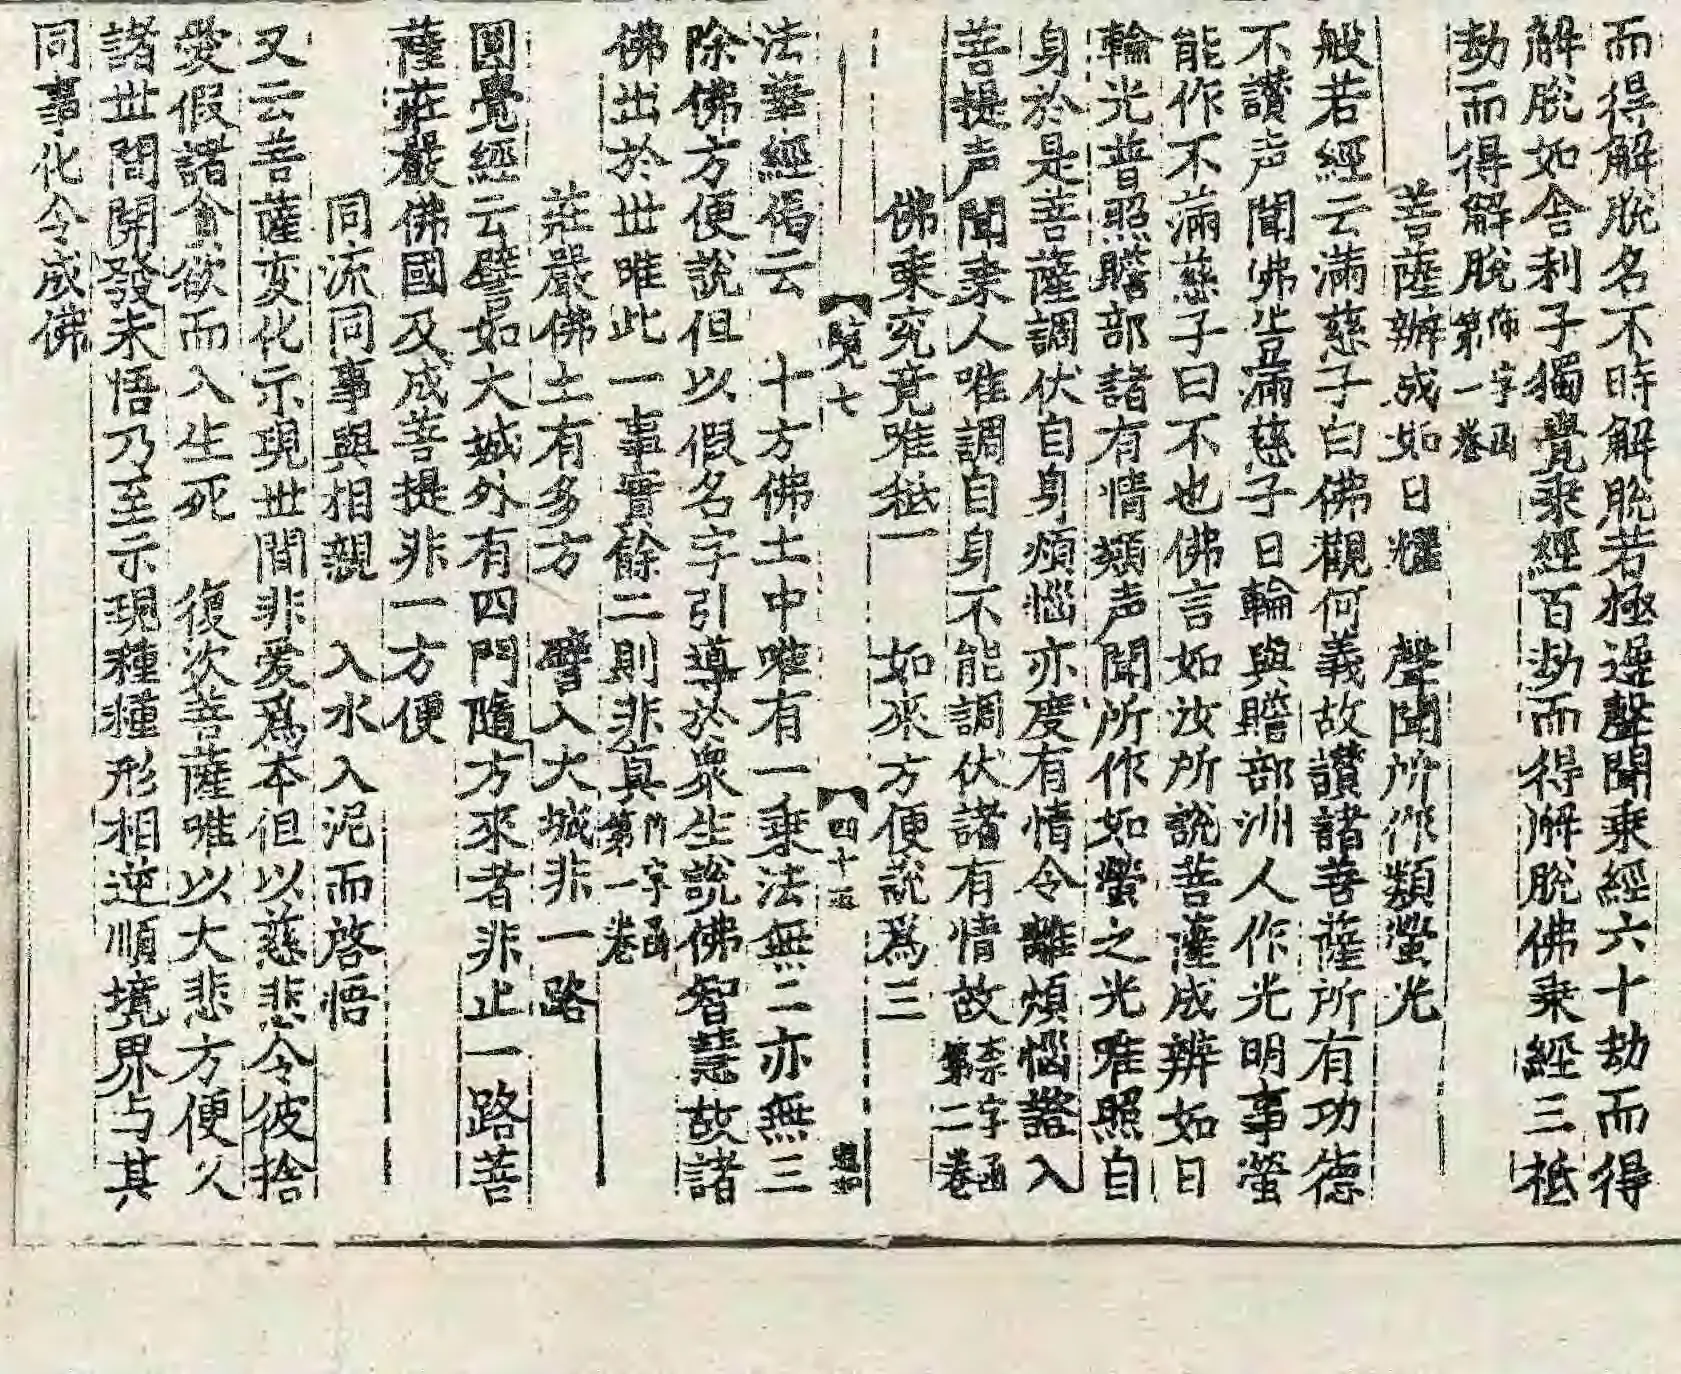 而得解脫名不時解脫若極遲聲聞乘經六十劫而得
解脫如舍利子獨覺乘經百劫而得解脫佛乘經三秖
劫而得解脫 字函第一卷
菩薩辦成如日耀 聲聞所作類螢光
般若經云滿慈子白佛觀何義故讚諸菩薩所有功德
不讚声聞佛告滿慈子日輪與贍部洲人作光明事螢
能作不滿慈子曰不也佛言如汝所說菩薩成辨如日
輪光普照贍部諸有情類声聞所作如螢之光唯照自
身於是菩薩調伏自身煩惱亦度有情令離煩惱證入
菩提声聞乘人唯調自身不能調伏諸有情故 柰字函第二卷
佛乘究竟唯秪一 如來方便說爲三
【覽七 【四十五
法華經偈云 十方佛土中唯有一乗法無二亦無三
除佛方便說但以假名字引導於衆生說佛智慧故諸
佛出於世唯此一事實餘二則非真 字函第一卷
莊嚴佛土有多方 譬入大城非一路
圓覺經云譬如大城外有四門隨方來者非止一路菩
薩莊嚴佛國及成菩提非一方便
同流同事與相親 入水入泥而啓悟
又云菩薩变化示現世間非爱爲本但以慈悲令彼捨
愛假諸貪欲而入生死 復次菩薩唯以大悲方便入
諸世間開發未悟乃至示現種種形相逆順境界与其
同事化令成佛